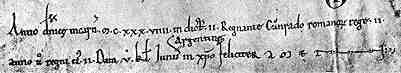 Anno dnice incarn. M. C. XXX. VIIII. indict. II. Regnante Cunrado romanor rege. II.
Argentine
anno u regni ei. II. Dat. V. kl. Iunii in xpo feliciter AM